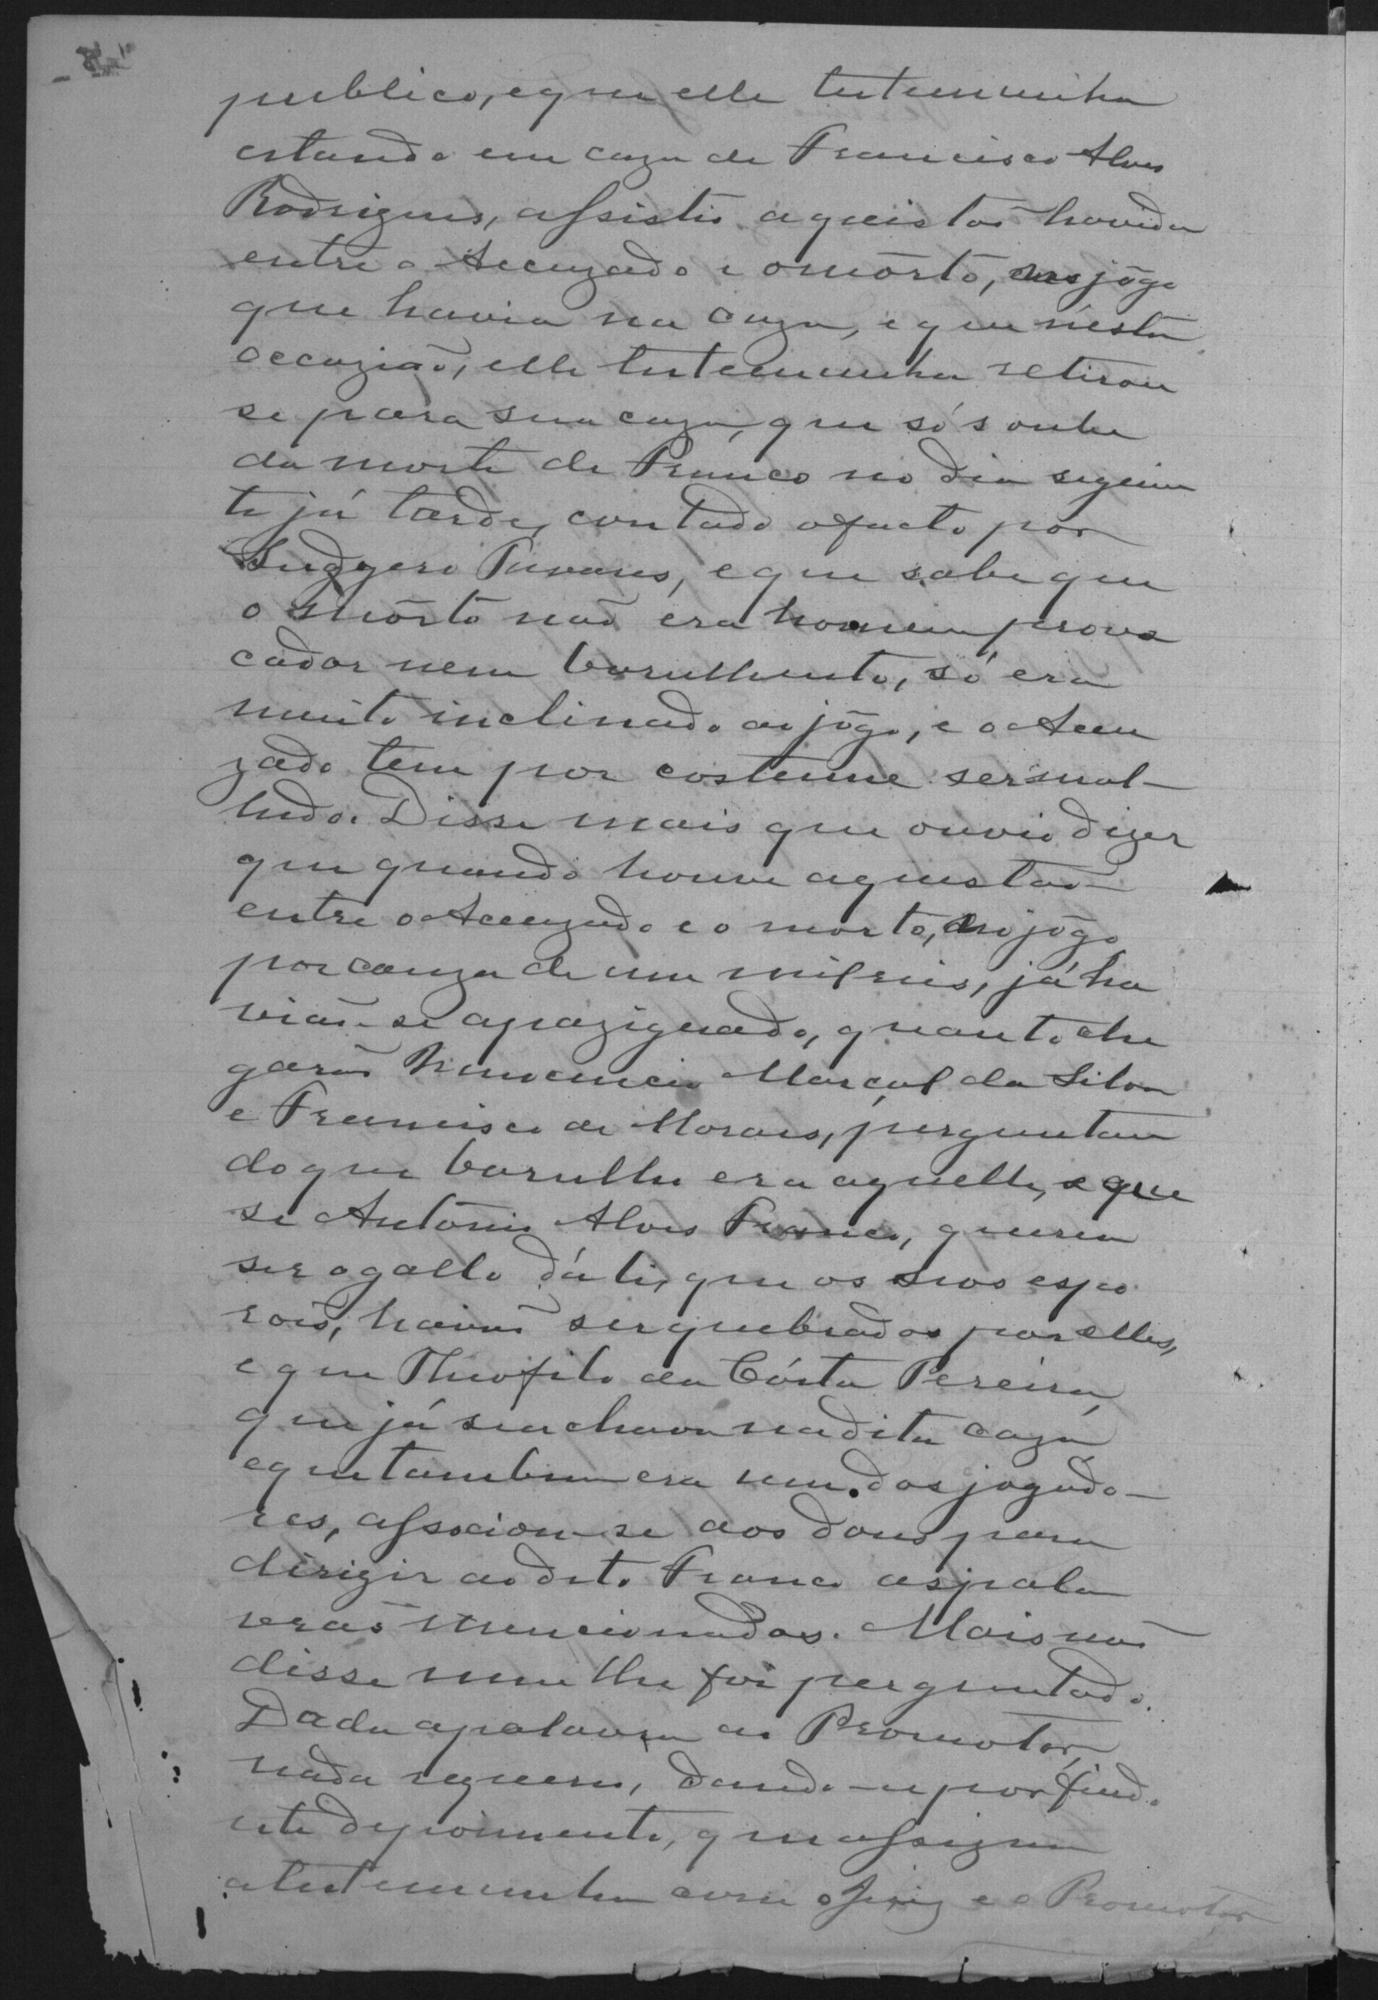 publico, e que elle testemunha
estando em caza de Francisco Alves
Rodrigues, assistio a questão havida
entre o Accuzado e o môrto, no jôgo
que havia na caza, e que n'esta
occazião, elle testemunha retirou
se para sua caza, que só soube
da morte de Franco no dia seguin
te já tarde, contado o facto por
Tavares, e que sabe que
o môrto não era homem provo
cador nem barulhento, só era
muito inclinado ao jôgo, e o Accu
zado tem por costume ser mal-
ludo. Disse mais que ouvio dizer
que quando houve a questão
entre o Accuzado e o morto, no jôgo
por cauza de um mil reis, já ha
vião-se apaziguado, quanto che
garão Marçal da Silva
e Francisco de Moraes, perguntan
do que barulho era aquelle, e que
se Antônio Alves Franco, queria
ser o gallo d'áli, que os seos espo
rois, havião ser quebrados por elles,
e que Theofilo da Cósta Pereira,
que já se achava na dita caza
e que tambem era um dos jogado-
res, associou-se aos dous para
dirigir ao dito Franco as pala
vras mencionadas. Mais não
disse nem lhe foi perguntado.
Dada a palavra ao Promotor,
nada requereu, dando-se por findo
este depoimento, que assigna
a testemunha com o Juiz e o Promotor